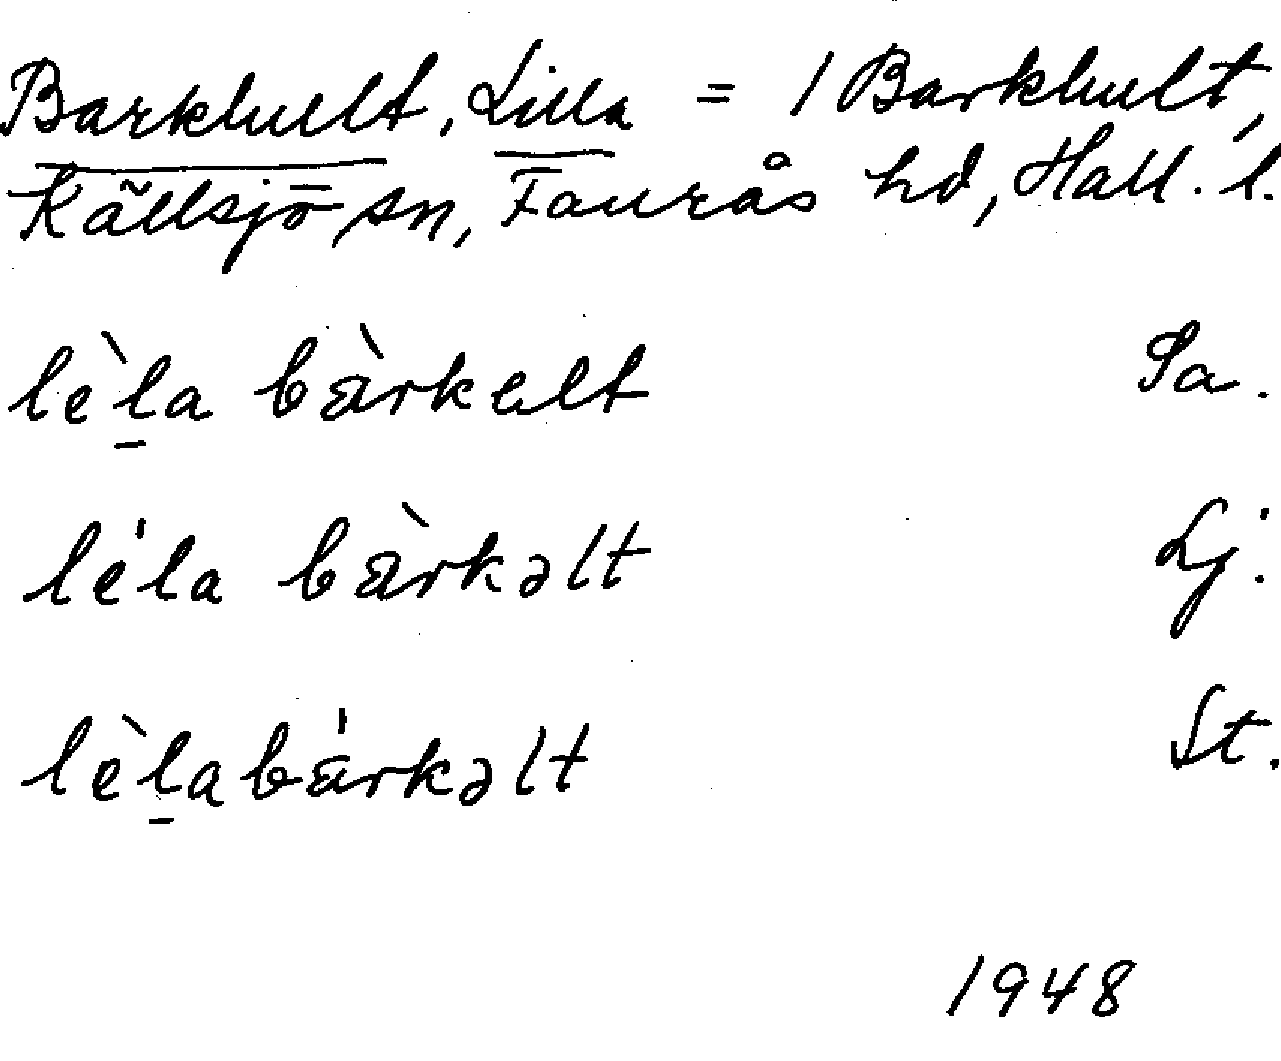 Barkhult, Lilla = 1 Barkhult,
Källsjö sn, Faurås hd, Hall. l.
lèl̠a bàrkelt Sa.
lè'la bàrkəlt Lj.
lèl̠aba̍rkəlt St.
1948